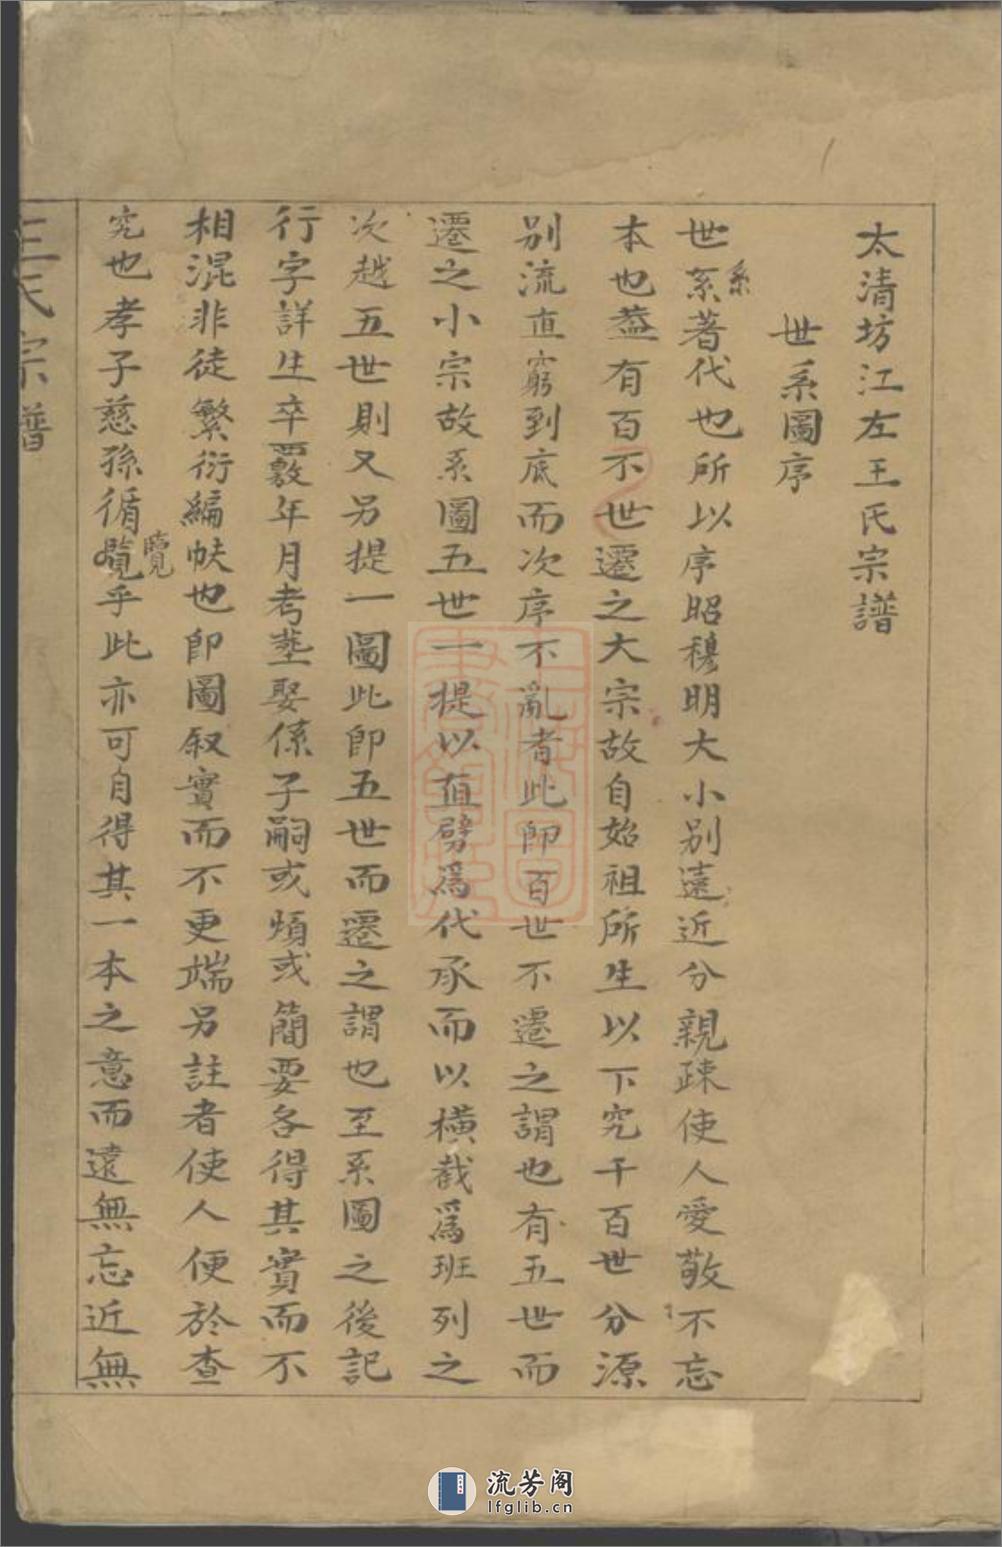 太清坊江左王氏宗譜
世系圖序
世系著代也所以序昭穆明大小別遠近分親疎使人愛敬不忘
系
本也葢有百不世遷之大宗故自始祖所生以下究千百世分源
別流直窮到底而次序不亂者此卽百世不遷之謂也有五世而
遷之小宗故系圖五世一提以直劈爲代承而以橫截爲班列之
次越五世則又另提一圖此卽五世而遷之謂也至系圖之後記
行字詳生卒覈年月考塟娶係子嗣或煩或簡要各得其實而不
相混非徒繁衍編帙也卽圖叙實而不更端另註者使人便於查
究也孝子慈孫循覽乎此亦可自得其一本之意而遠無忘近無
覽
王氏宗譜
流芳阁
lfglib.cn